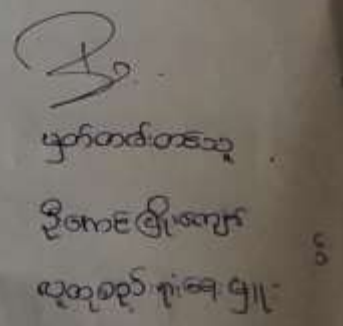 မှတ်တမ်းတင်သူ
ဦးကောင်းမြိုးကျော်
လူထုစည်းရုံးရေးမှူး